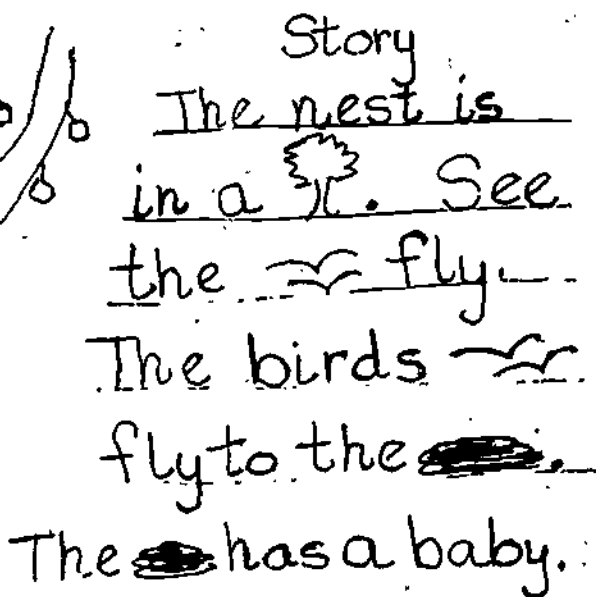 Story
The nest is
in a . See
the fly
The birds
fly to the .
The has a baby.